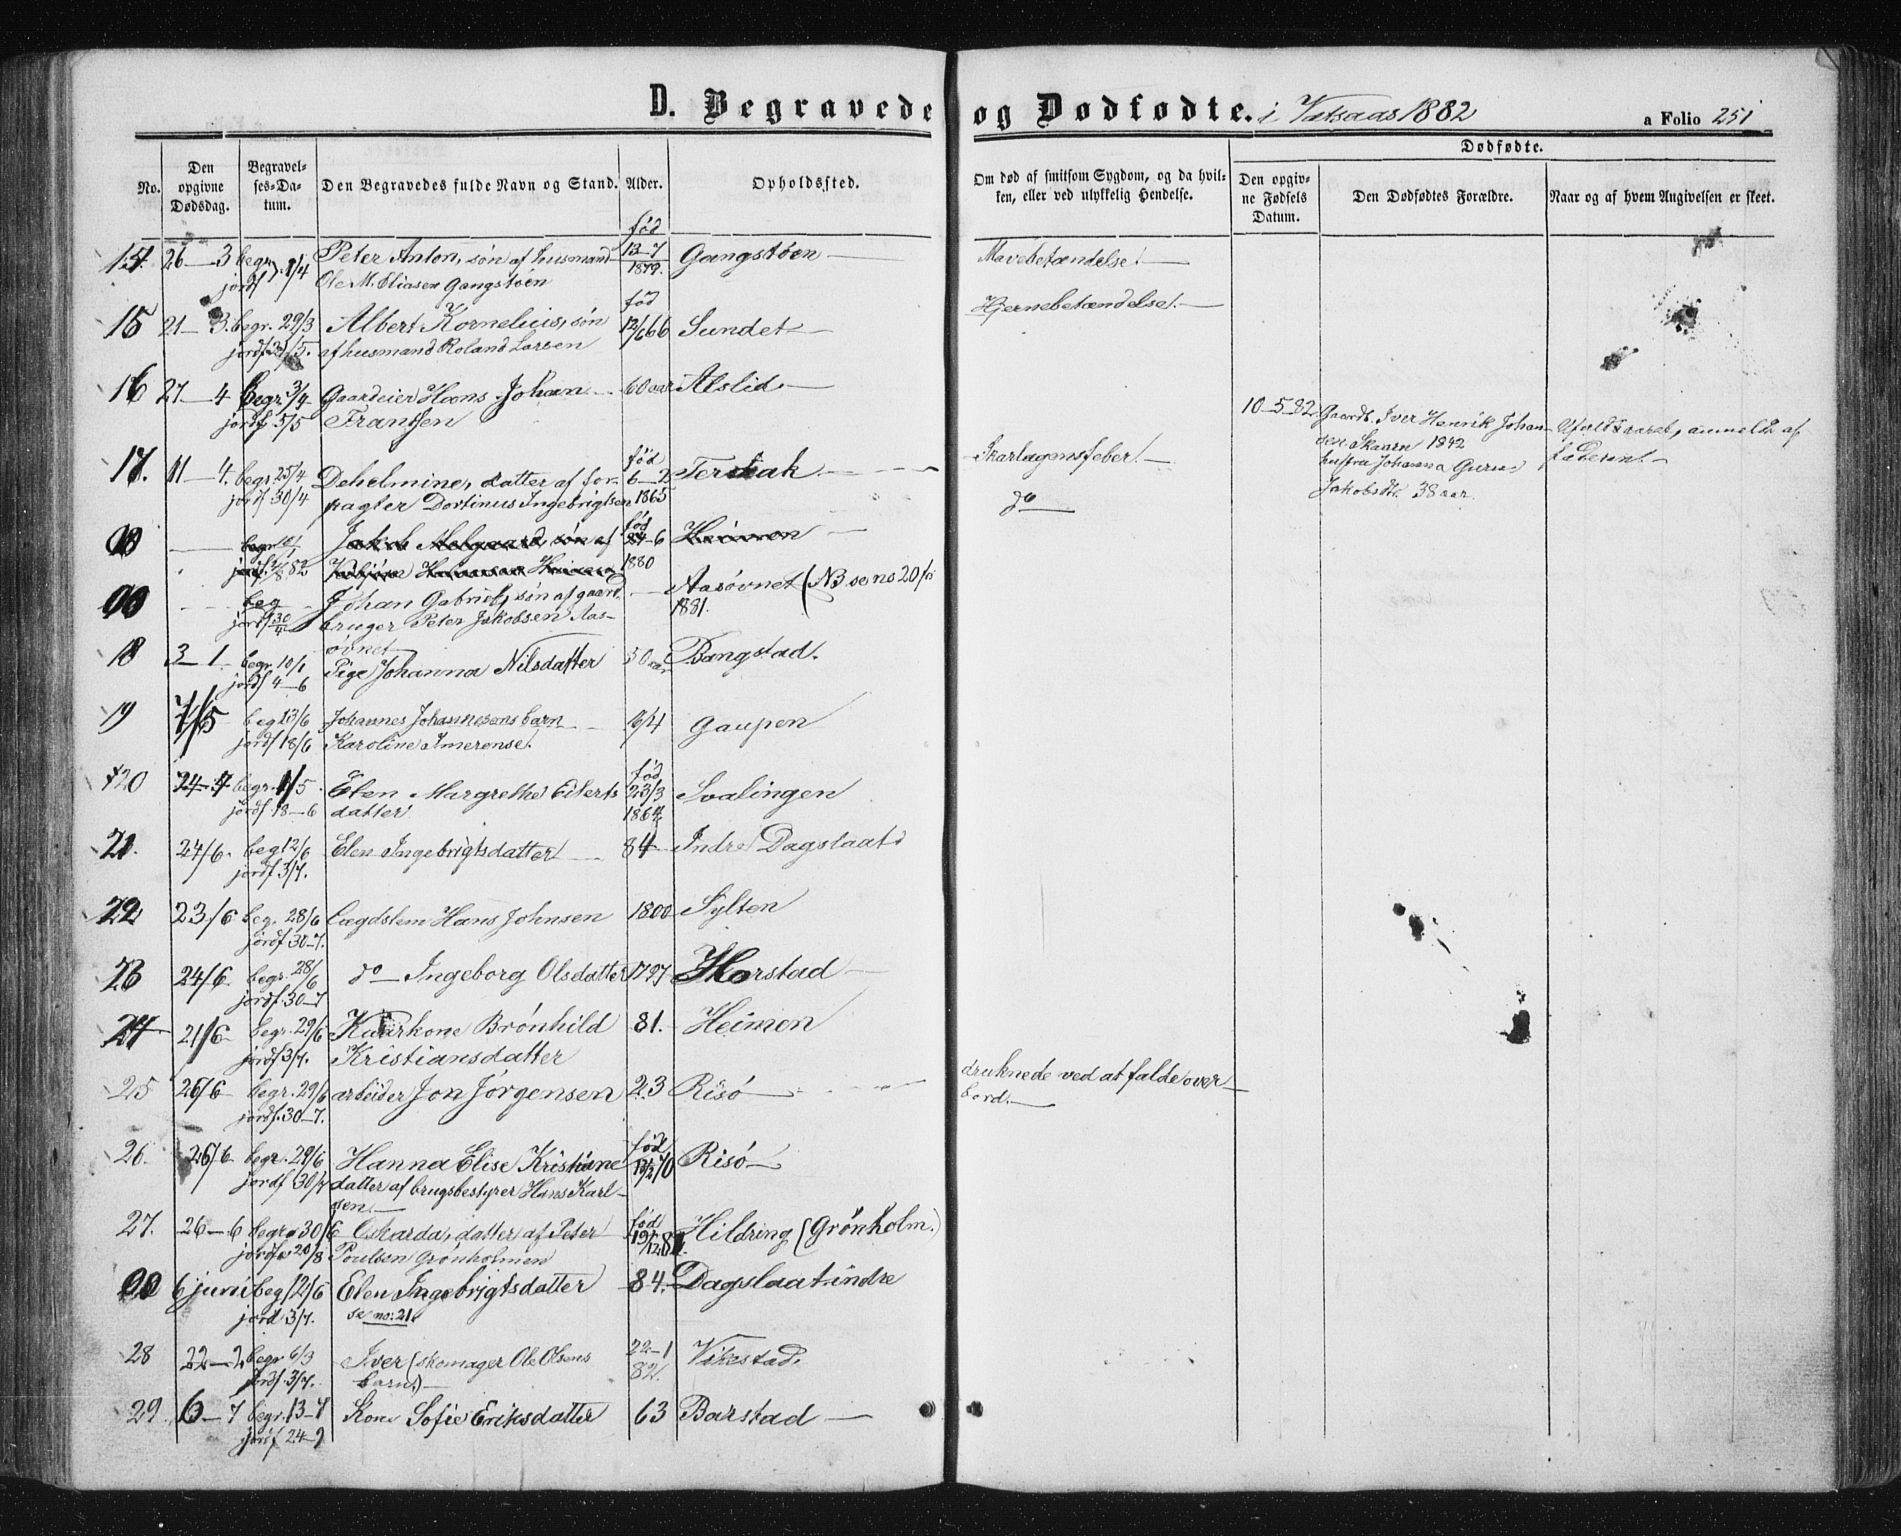 D. Begravede og Dødfødte. i Vatsaas 1882
a Folio 251
Dødfødte.
No.
Den opgivne Dødsdag.
Begravelses-Datum.
Den Begravedes fulde Navn og Stand.
Alder.
Opholdssted.
Om død af smitsom Sygdom, og da hvilken, eller ved ulykkelig Hendelse.
Den opgivne Fødsels Datum.
Den Dødfødtes Forældre.
Naar og af hvem Angivelsen er skeet.
født
26-3 begr. Peter Anton, søn af husmand 13-7 Gangstøen Mavebetændelse
jordf 9/4 Ole M. Eliasen Gangstøen 1879.
fød Hjernebetændelse
15 21-3. begr. 29/3 Albert Kornelius, søn 12/6 66 Sundet
jordf af husmand Roland Larsen
16 27-4 begr. Gaardeier Hans Johan 60 aar Alslid
jordf 5/5 Frantsen
10-5-82 Gaardb. Iver Henrik Johan-
sen Skaarn 1842 anmeldt af
hustru Johanna faderen
Jakobsdtr. 38 aar.
17. 11-4. begr. 25/4 Dehelmine, datter af for- fød 6-2 Terraak Skarlagensfeber
jordf 30/4 pagter Dortinus Ingebrigtsen 1865
do
begr Jakob søn af fød 6
jordf 82 1880
beg Johan Gabriel, søn af gaard- Aasøvnet (NB. se no 20 for
jordf 30/4 bruger Peter Jakobsen Aas- 1881.
øvnet
18 3-1 begr. 10/1 Pige Johanna Nilsdatter Bangstad.
jordf 4-6
19 7/5 beg 13/6 Johannes Johannesens barn Gaupen
jordf 18/6 Karoline Imerense
20 24-4 begr. 1/5 Elen Margrethe Eilerts- fød 23/3 Svalingen
jordf. 18-6 datter 1864
21. 24/6. beg 12/6 Elen Ingebrigtsdatter 84 Indre Dagslaat
jordf. 3/7.
22 23/6 beg. 28/6 Lægdslem Hans Johnsen 1800 Sylten
jordf 30-7.
23 24/6. begr. 28/6 do Ingeborg Olsdatter 1797 Horstad
jordf. 30-7
24 21/6 begr. 29/6 Kaarkone Brønhild 81. Heimon
jordf 3/7. Kristiansdatter
25 26/6 begr. 29/6 arbeider Jon Jørgensen 23 Risø druknede ved at falde over
jordf. 30-7. bord.
26. 26/6 begr. 29/6 Hanna Elise Kristiane fød 12/2 70 Risø
jordf 30/7 datter af brugsbestyrer Hans Karl-
sen.
27. 26-6 begr. 30/6 Oskarda, datter af Peter fød Hildring (Grønholm.)
jordf. 20/8 Poulsen Grønholmen
6 juni beg 12/6 Elen Ingebrigtsdatter 84. Dagslaat indre
jord 3/7. se no: 21.
28 22-2 begr 6/3 Iver (skomager Ole Olsens 22-1 Vikestad.
jordf. 3/7. barn.) 82.
29 6-7 begr. 13-7 Kone Sofie Eriksdatter 63 Barstad
jordf 24-9